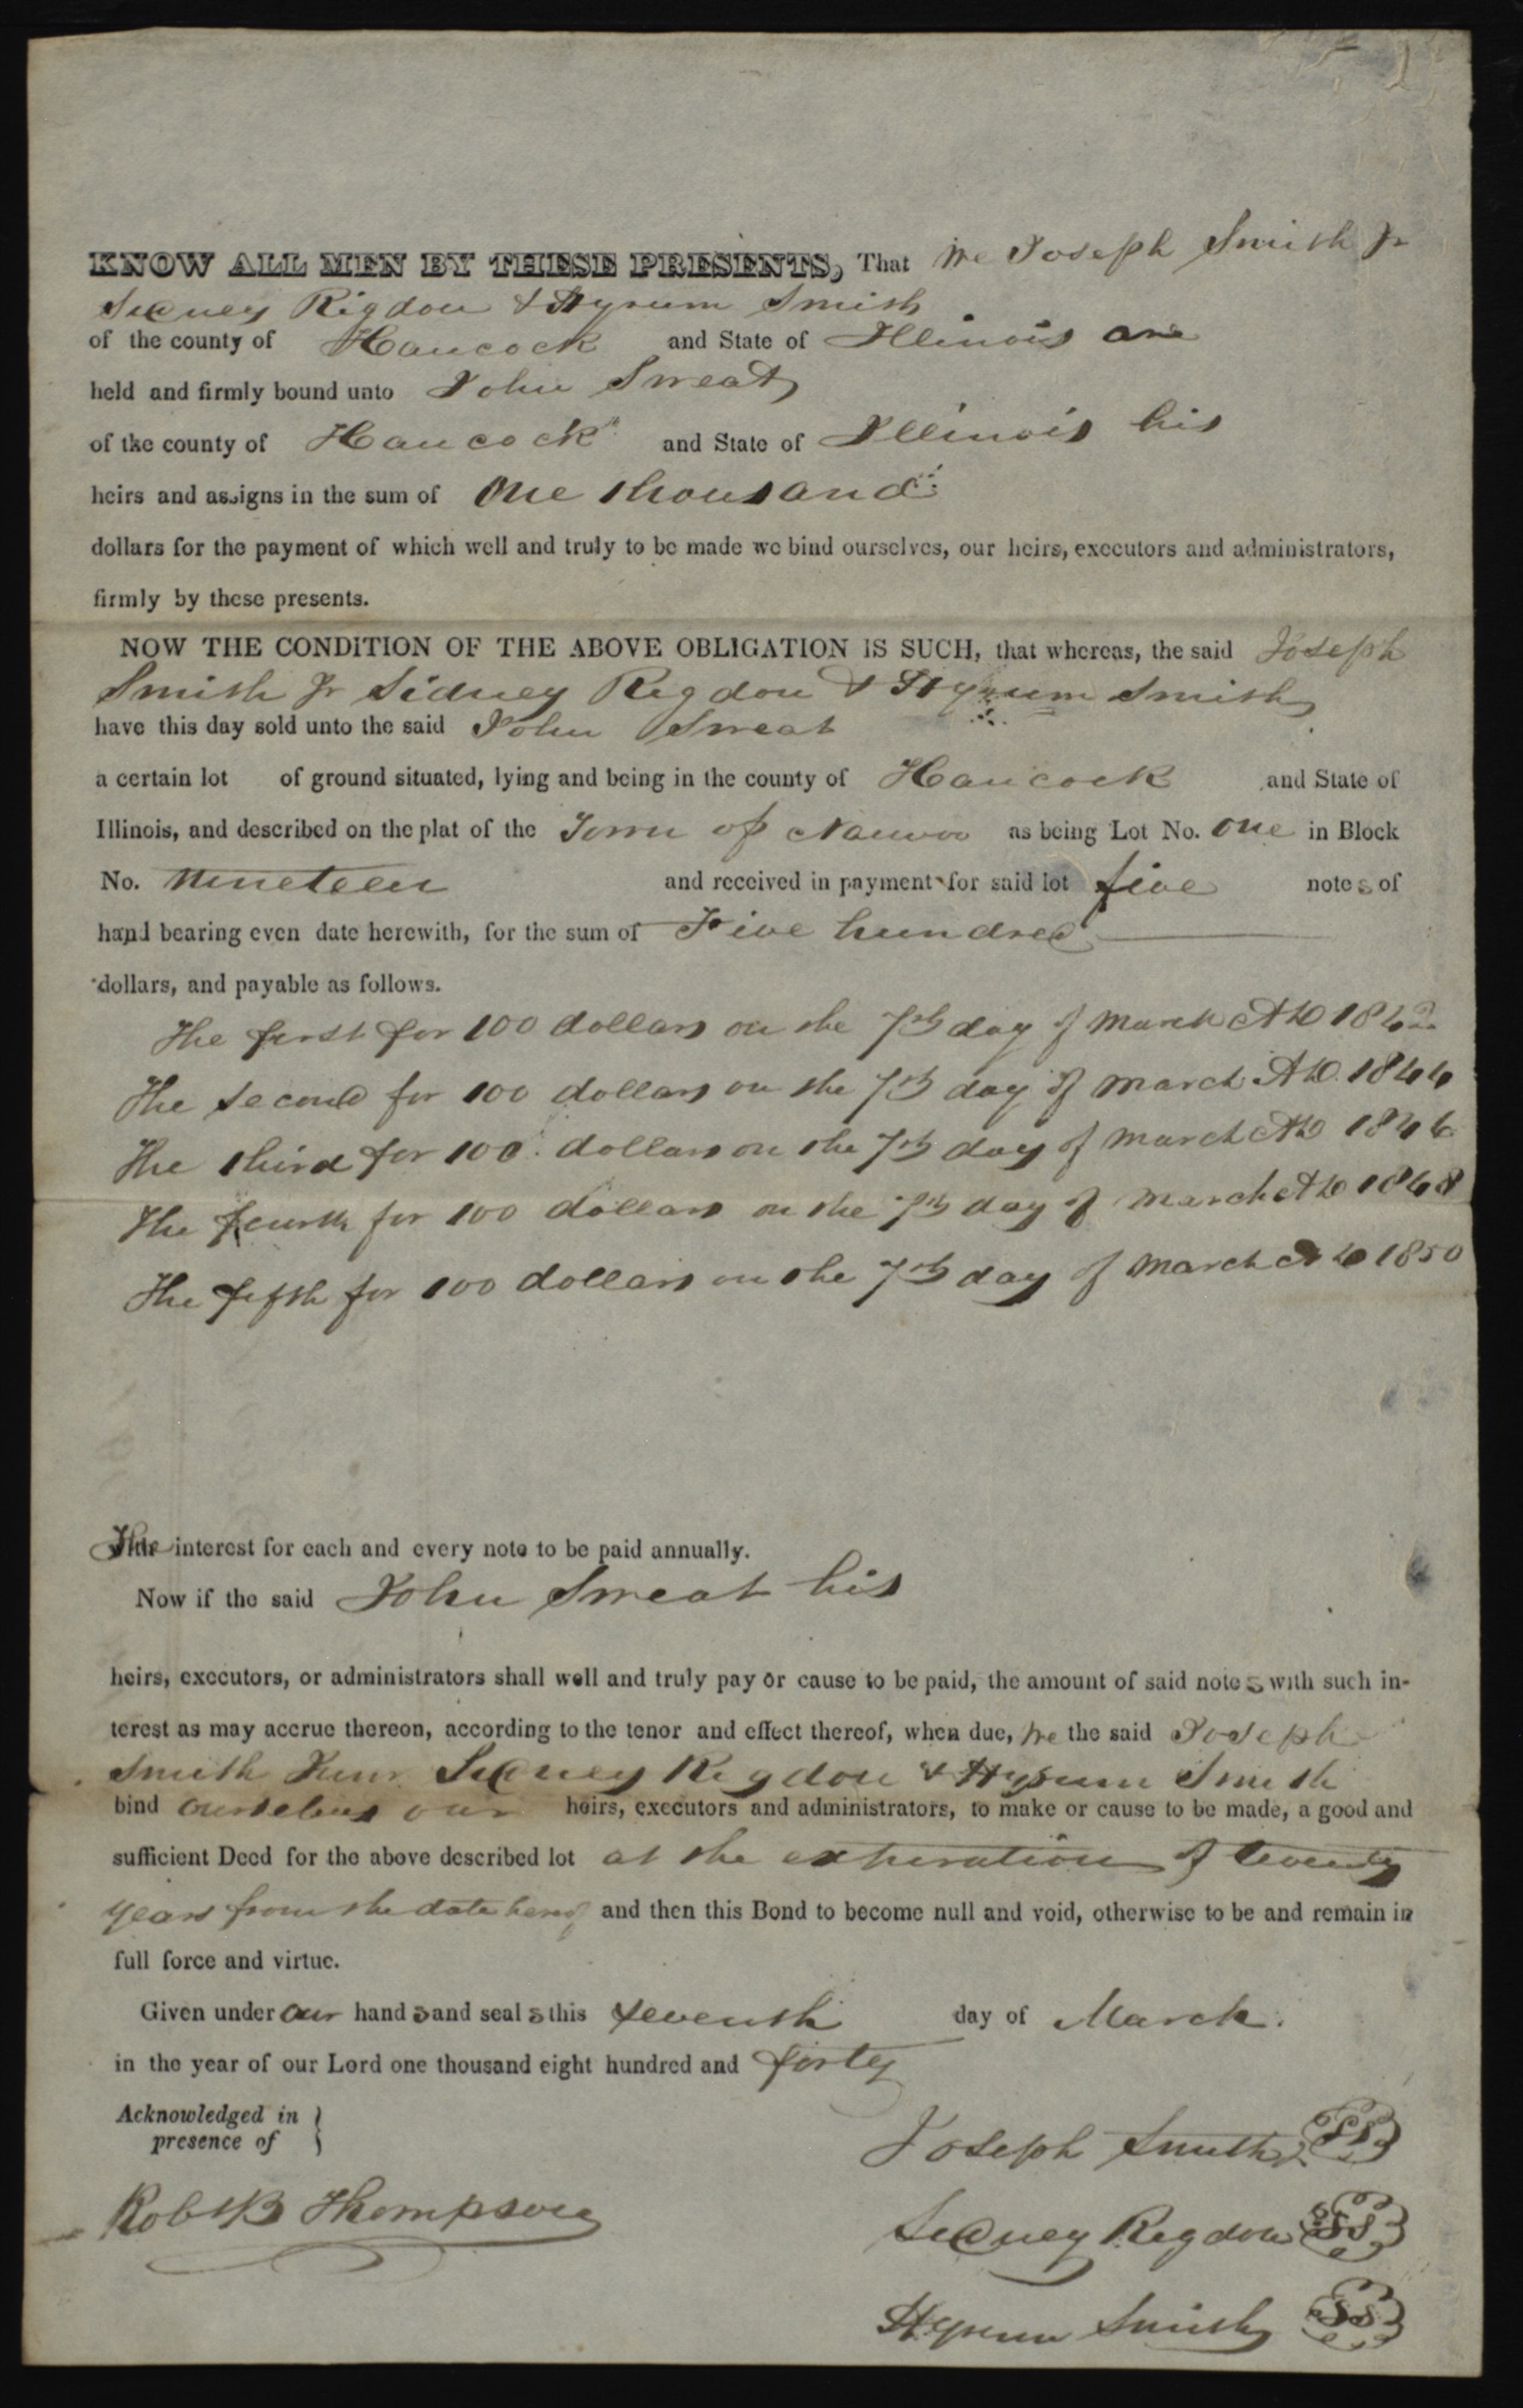 KNOW ALL MEN BY THESE PRESENTS, That we Joseph Smith Jr
Sidney Rigdon & Hyrum Smith
of the county of Hancock and State of Illinois are
held and firmly bound unto John Sweat
of the county of Hancock and State of Illinois his
heirs and assigns in the sum of One thousand
dollars for the payment of which well and truly to be made we bind ourselves, our heirs, executors and administrators,
firmly by these presents.
NOW THE CONDITION OF THE ABOVE OBLIGATION IS SUCH, that whereas, the said Joseph
Smith Jr Sidney Rigdon & Hyrum Smith
have this day sold unto the said John Sweat
a certain lot of ground situated, lying and being in the county of Hancock and State of
Illinois, and described on the plat of the Town of Nauvoo as being Lot No. one in Block
No. nineteen and received in payment for said lot five notes of
hand bearing even date herewith, for the sum of Five hundred
dollars, and payable as follows.
The first for 100 dollars on the 7th day of March AD 1842
The second for 100 dollars on the 7th day of March AD. 1844
The third for 100 dollars on the 7th day of March AD 1846
The fourth for 100 dollars on the 7th day of March AD 1848
The fifth for 100 dollars on the 7th day of March AD 1850
The interest for each and every note to be paid annually.
Now if the said John Sweat his
heirs, executors, or administrators shall well and truly pay or cause to be paid, the amount of said notes with such in-
terest as may accrue thereon, according to the tenor and effect thereof, when due, we the said Joseph
Smith Junr Sidney Rigdon & Hyrum Smith
bind ourselves our heirs, executors and administrators, to make or cause to be made, a good and
sufficient Deed for the above described lot at the expiration of twenty
years from the date hereof and then this Bond to become null and void, otherwise to be and remain in
full force and virtue.
Given under our hands and seals this seventh day of March.
in the year of our Lord one thousand eight hundred and forty
Acknowledged in
presence of }
Joseph Smith Jr
Robt B Thompson
Sidney Rigdon
Hyrum Smith